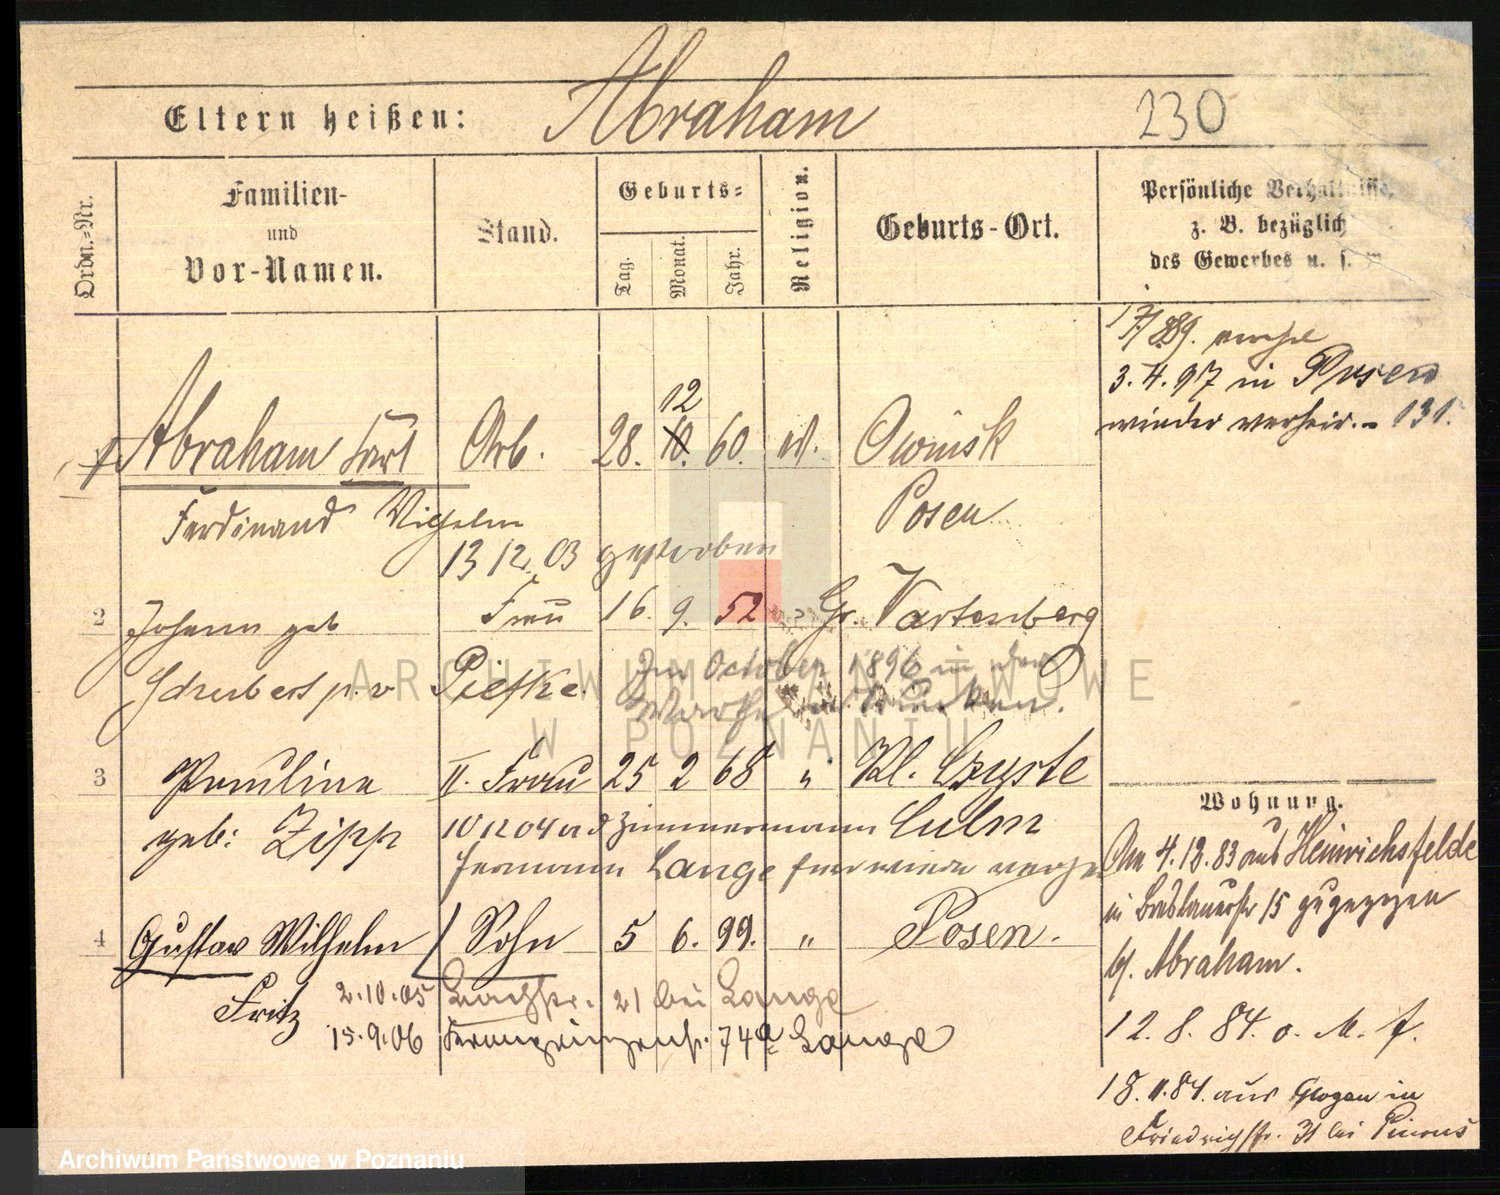 Eltern heißen: Abraham 230
Ordn.-Nr.
Familien-
und
Vor-Namen.
Stand.
Geburts-
Tag.
Monat.
Jahr.
Religion.
Geburts-Ort.
Persönliche Verhältnisse,
z. B. bezüglich
des Gewerbes u. s. w.
3.4.97 in Posen
wieder verheir. - 131.
12
1 Abraham Karl Arb. 28. 10. 60. Owinsk
Ferdinand Wilhelm Posen
13 12. 03 gestorben
2 Johann geb Frau 16. 9. 52 Gr. Wartenberg
Piefke. Im October 1896 in der
3 Pauline II. Frau 25 2 68 " Kl. Czyste
geb: Zipp 10 12 04 Zimmermann Culm
Hermann Lange
4 Gustav Wilhelm / Sohn 5 6. 99. " Posen.
Fritz 2.10.05 21 bei Lange
15.9.06 74a Lange
Wohnung.
Am 4.12.83 aus Heinrichsfelde
in Breslauerstr 15 zugezogen
b/. Abraham.
12. 8. 84. o. M. f.
18.11.84. aus Glogau in
Friedrichstr. 31 bei
ARCHIWUM PAŃSTWOWE
W POZNANIU
Archiwum Państwowe w Poznaniu